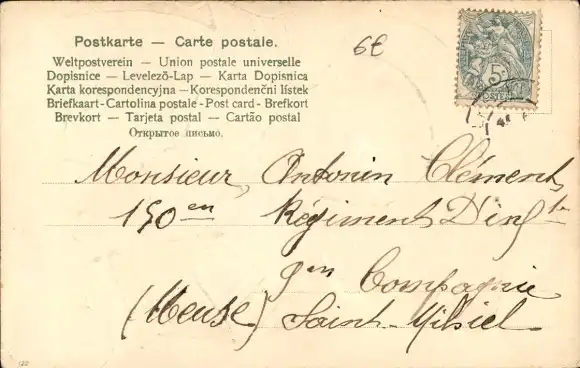 Postkarte — Carte postale.
Weltpostverein — Union postale universelle
Dopisnice — Levelezõ-Lap — Karta Dopisnica
Karta korespondencyjna — Korespondenční lístek
Briefkaart - Cartolina postale - Post card - Brefkort
Brevkort — Tarjeta postal — Cartão postal
Открытое письмо.
6€
5
Monsieur, Antonin Clément,
150en Régiment D'infte
9en Compagnie
(Meuse) Saint-Mihiel